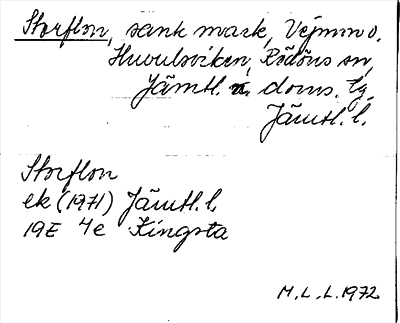 Storflon, sank mark, Vejmon o.
Huvulsviken, Rödöns sn,
Jämtl. n. doms. tg,
Jämtl. l.
Storflon
ek (1971) Jämtl. l.
19E 4e Kingsta
M. L. L. 1972